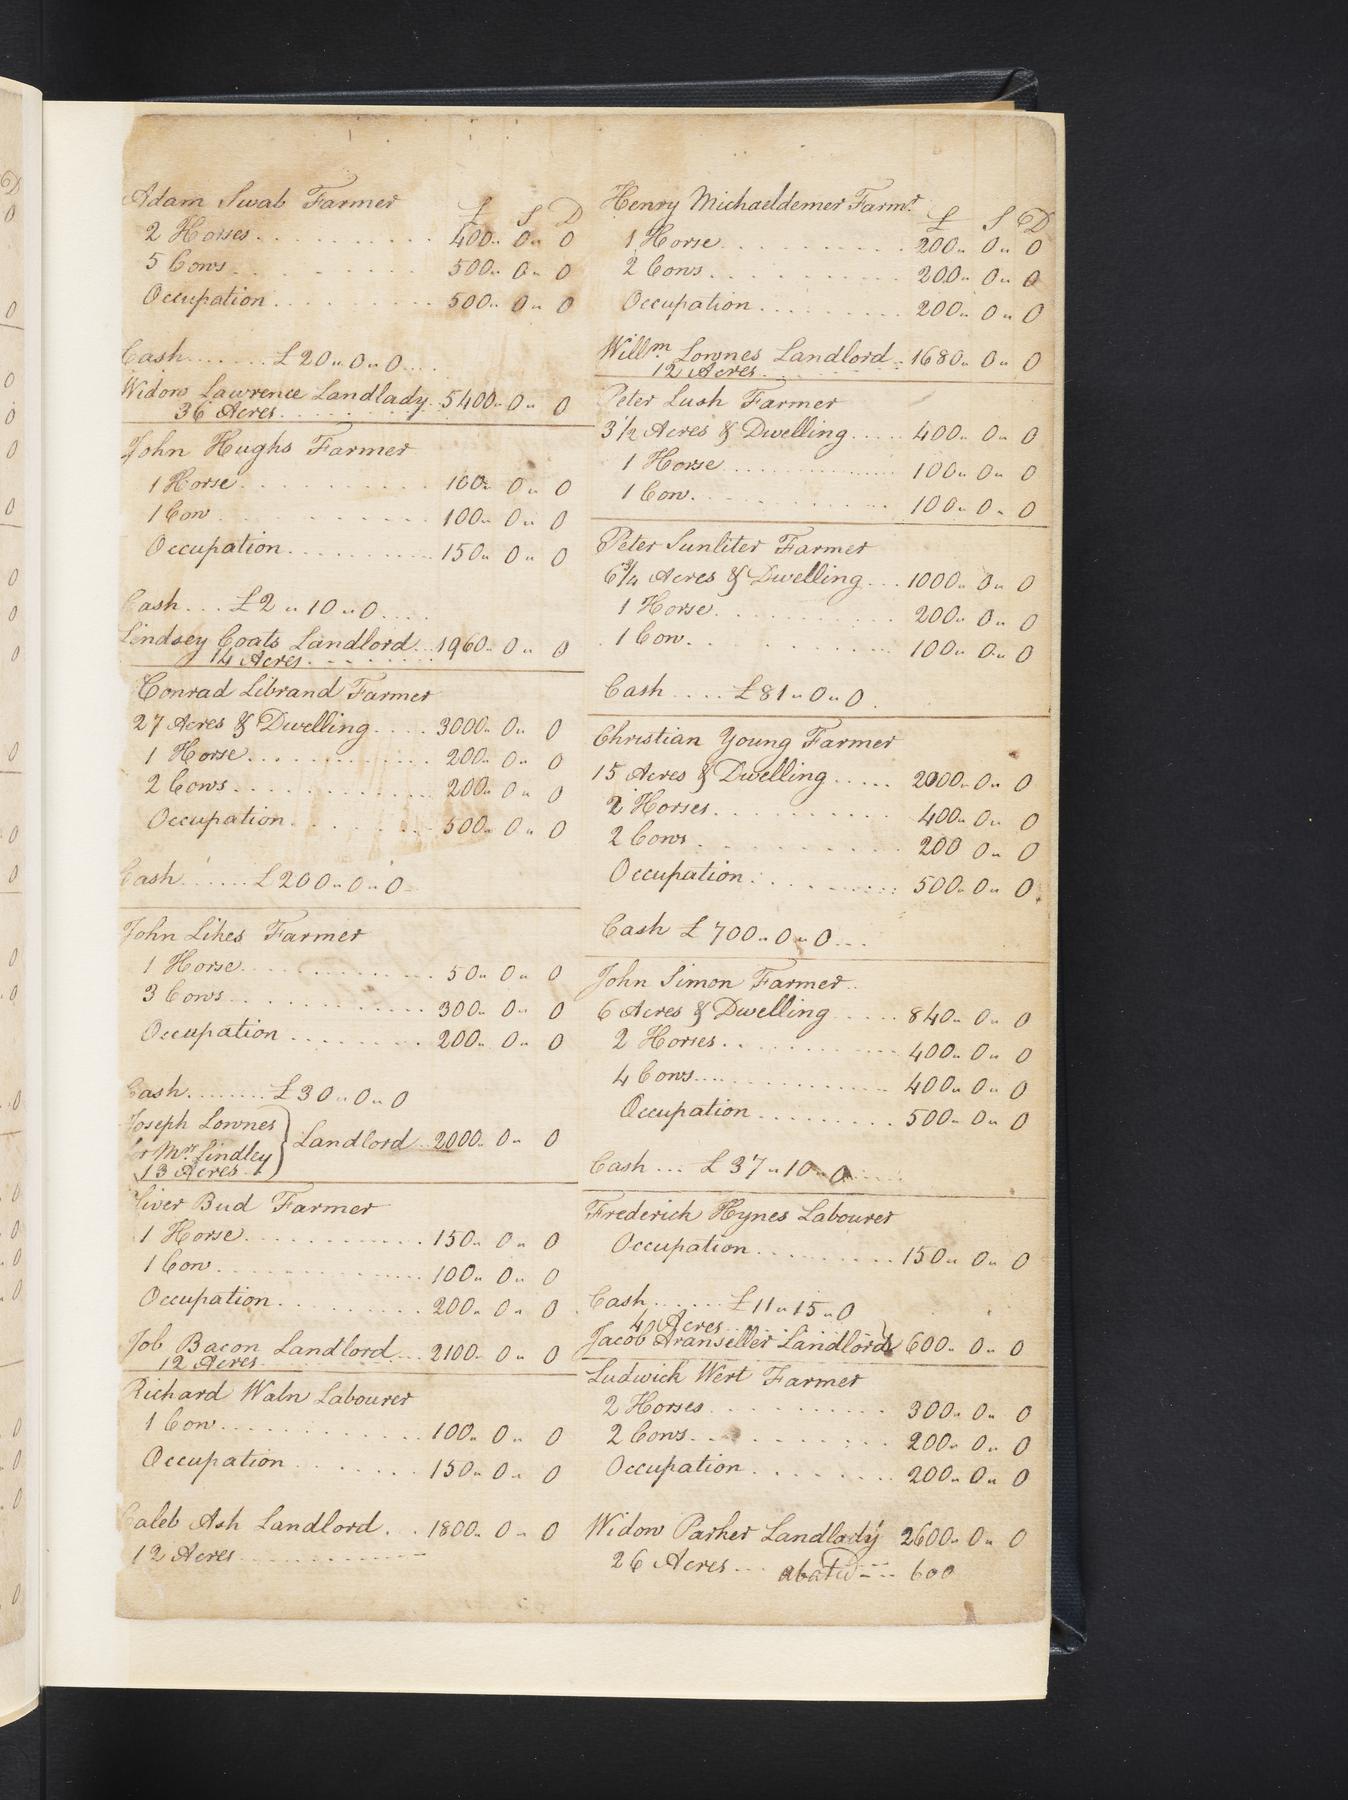 Adam Swab Farmer
£ S D
2 Horses . . . . . . . . . . 400.. 0.. 0
5 Cows . . . . . . . . . 500.. 0.. 0
Occupation . . . . . . . . 500.. 0.. 0
Cash . . . . . . £20..0..0 . . .
Widow Lawrence Landlady . 5400.. 0.. 0
36 Acres . . . . . . . . .
John Hughs Farmer
1 Horse . . . . . . . . . . 100.. 0.. 0
1 Cow . . . . . . . . . . 100.. 0.. 0
Occupation . . . . . . . . . 150.. 0.. 0
Cash . . . £2..10..0 . . . .
Lindsey Coats Landlord . . 1960.. 0.. 0
14 Acres . . . . . . . .
Conrad Librand Farmer
27 Acres & Dwelling . . . . 3000.. 0.. 0
1 Horse . . . . . . . . . . . . 200.. 0.. 0
2 Cows . . . . . . . . . . . . 200.. 0.. 0
Occupation . . . . . . . . 500.. 0.. 0
Cash . . . . . . £200..0..0
John Likes Farmer
1 Horse . . . . . . . . . . . . 50.. 0.. 0
3 Cows . . . . . . . . . . . . 300.. 0.. 0
Occupation . . . . . . . . 200.. 0.. 0
Cash . . . . . . . . £30..0..0
Joseph Lownes
or Mrs Lindley } Landlord . 2000.. 0.. 0
13 Acres
Oliver Bud Farmer
1 Horse . . . . . . . . . . . . 150.. 0.. 0
1 Cow . . . . . . . . . . . . . 100.. 0.. 0
Occupation . . . . . . . . . 200.. 0.. 0
Job Bacon Landlord . . . 2100.. 0.. 0
12 Acres . . . . . . . . .
Richard Waln Labourer
1 Cow . . . . . . . . . . . . . 100.. 0.. 0
Occupation . . . . . . . . 150.. 0.. 0
Caleb Ash Landlord . . . 1800.. 0.. 0
12 Acres . . . . . . . . . . .
Henry Michaeldemer Farmr.
£ S D
1 Horse . . . . . . . . . . 200.. 0.. 0
2 Cows . . . . . . . . . . 200.. 0.. 0
Occupation . . . . . . . . . 200.. 0.. 0
Willm. Lownes Landlord . . 1680.. 0.. 0
12 Acres . . . . . . . . .
Peter Lush Farmer
3 1/2 Acres & Dwelling . . . . . 400.. 0.. 0
1 Horse . . . . . . . . . . . . 100.. 0.. 0
1 Cow . . . . . . . . . . . . 100.. 0.. 0
Peter Sunliter Farmer
6 3/4 Acres & Dwelling . . . 1000.. 0.. 0
1 Horse . . . . . . . . . . . 200.. 0.. 0
1 Cow . . . . . . . . . . . . 100.. 0.. 0
Cash . . . . £81..0..0 .
Christian Young Farmer
15 Acres & Dwelling . . . . . 2000.. 0.. 0
2 Horses . . . . . . . . . . 400.. 0.. 0
2 Cows . . . . . . . . . . . 200 0.. 0
Occupation . . . . . . . . . . 500.. 0.. 0
Cash £700..0..0 . . .
John Simon Farmer . .
6 Acres & Dwelling . . . . . 840.. 0.. 0
2 Horses . . . . . . . . . . . . 400.. 0.. 0
4 Cows . . . . . . . . . . . . 400.. 0.. 0
Occupation . . . . . . . . . 500.. 0.. 0
Cash . . . £37..10..0 . . . . .
Frederich Hynes Labourer
Occupation . . . . . . . . . 150.. 0.. 0
Cash . . . . . . £11..15..0
40 Acres . . . . . . . .
Jacob Transeller Landlord 600.. 0.. 0
Ludwich Wert Farmer
2 Horses . . . . . . . . . . 300.. 0.. 0
2 Cows . . . . . . . . . . 200.. 0.. 0
Occupation . . . . . . . . 200.. 0.. 0
Widow Parker Landlady 2600.. 0.. 0
26 Acres . . . abatd - - - 600